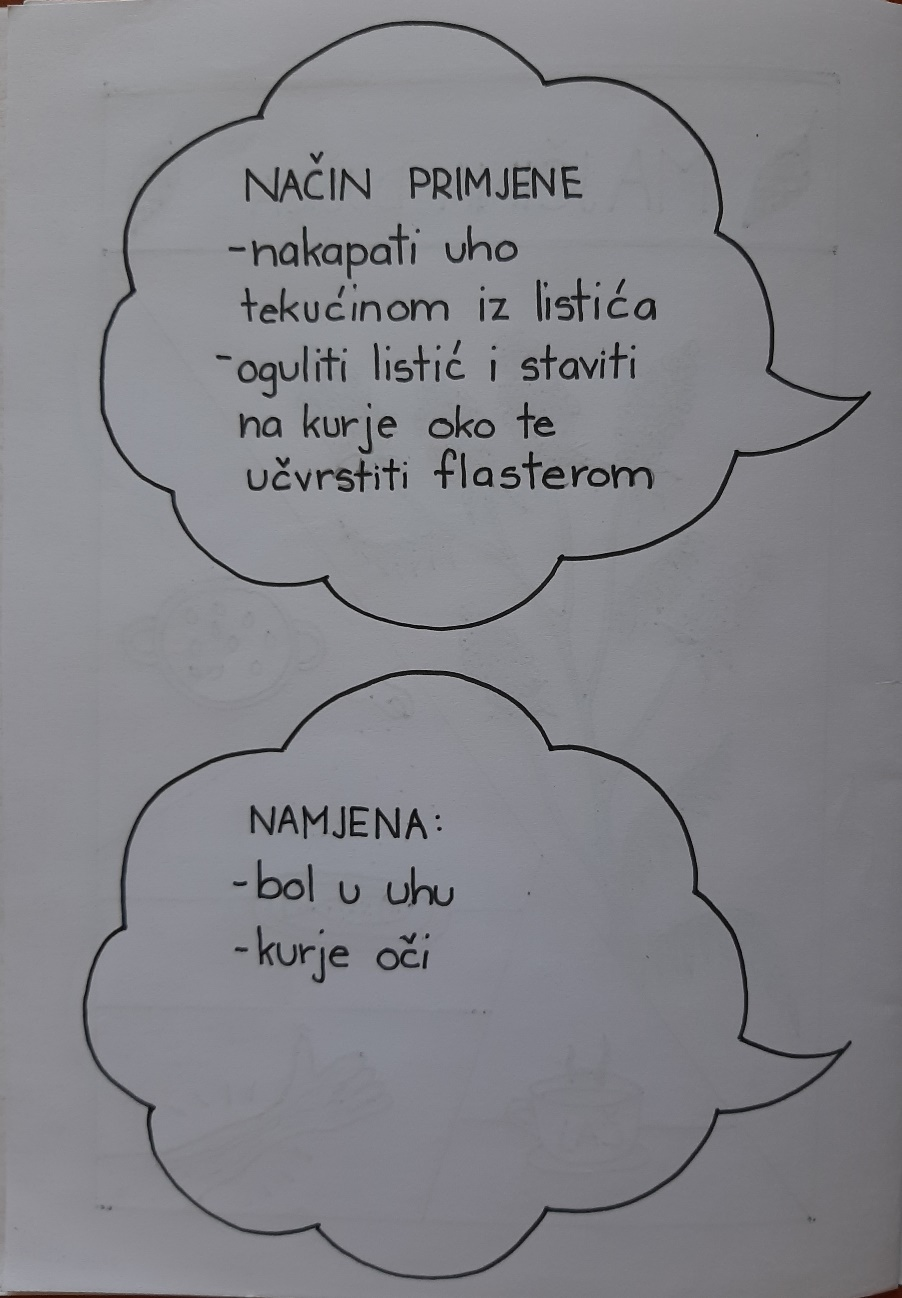 NAČIN PRIMJENE
-nakapati uho
tekućinom iz listića
-oguliti listić i staviti
na kurje oko te
učvrstiti flasterom
NAMJENA:
-bol u uhu
-kurje oči